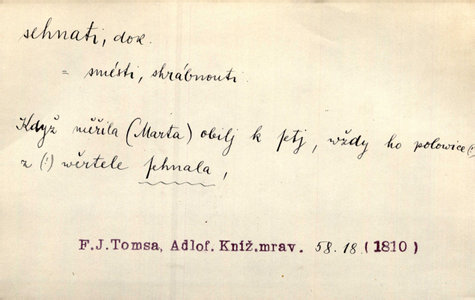 sehnati, dok.
= smésti, shrábnouti.
Když měřila (Marta) obilj k ſetj, wždy ho polowice (:)
z (:) wěrtele ſehnala,
F.J.Tomsa, Adlof. Kníž.mrav. 58. 18. (1810)